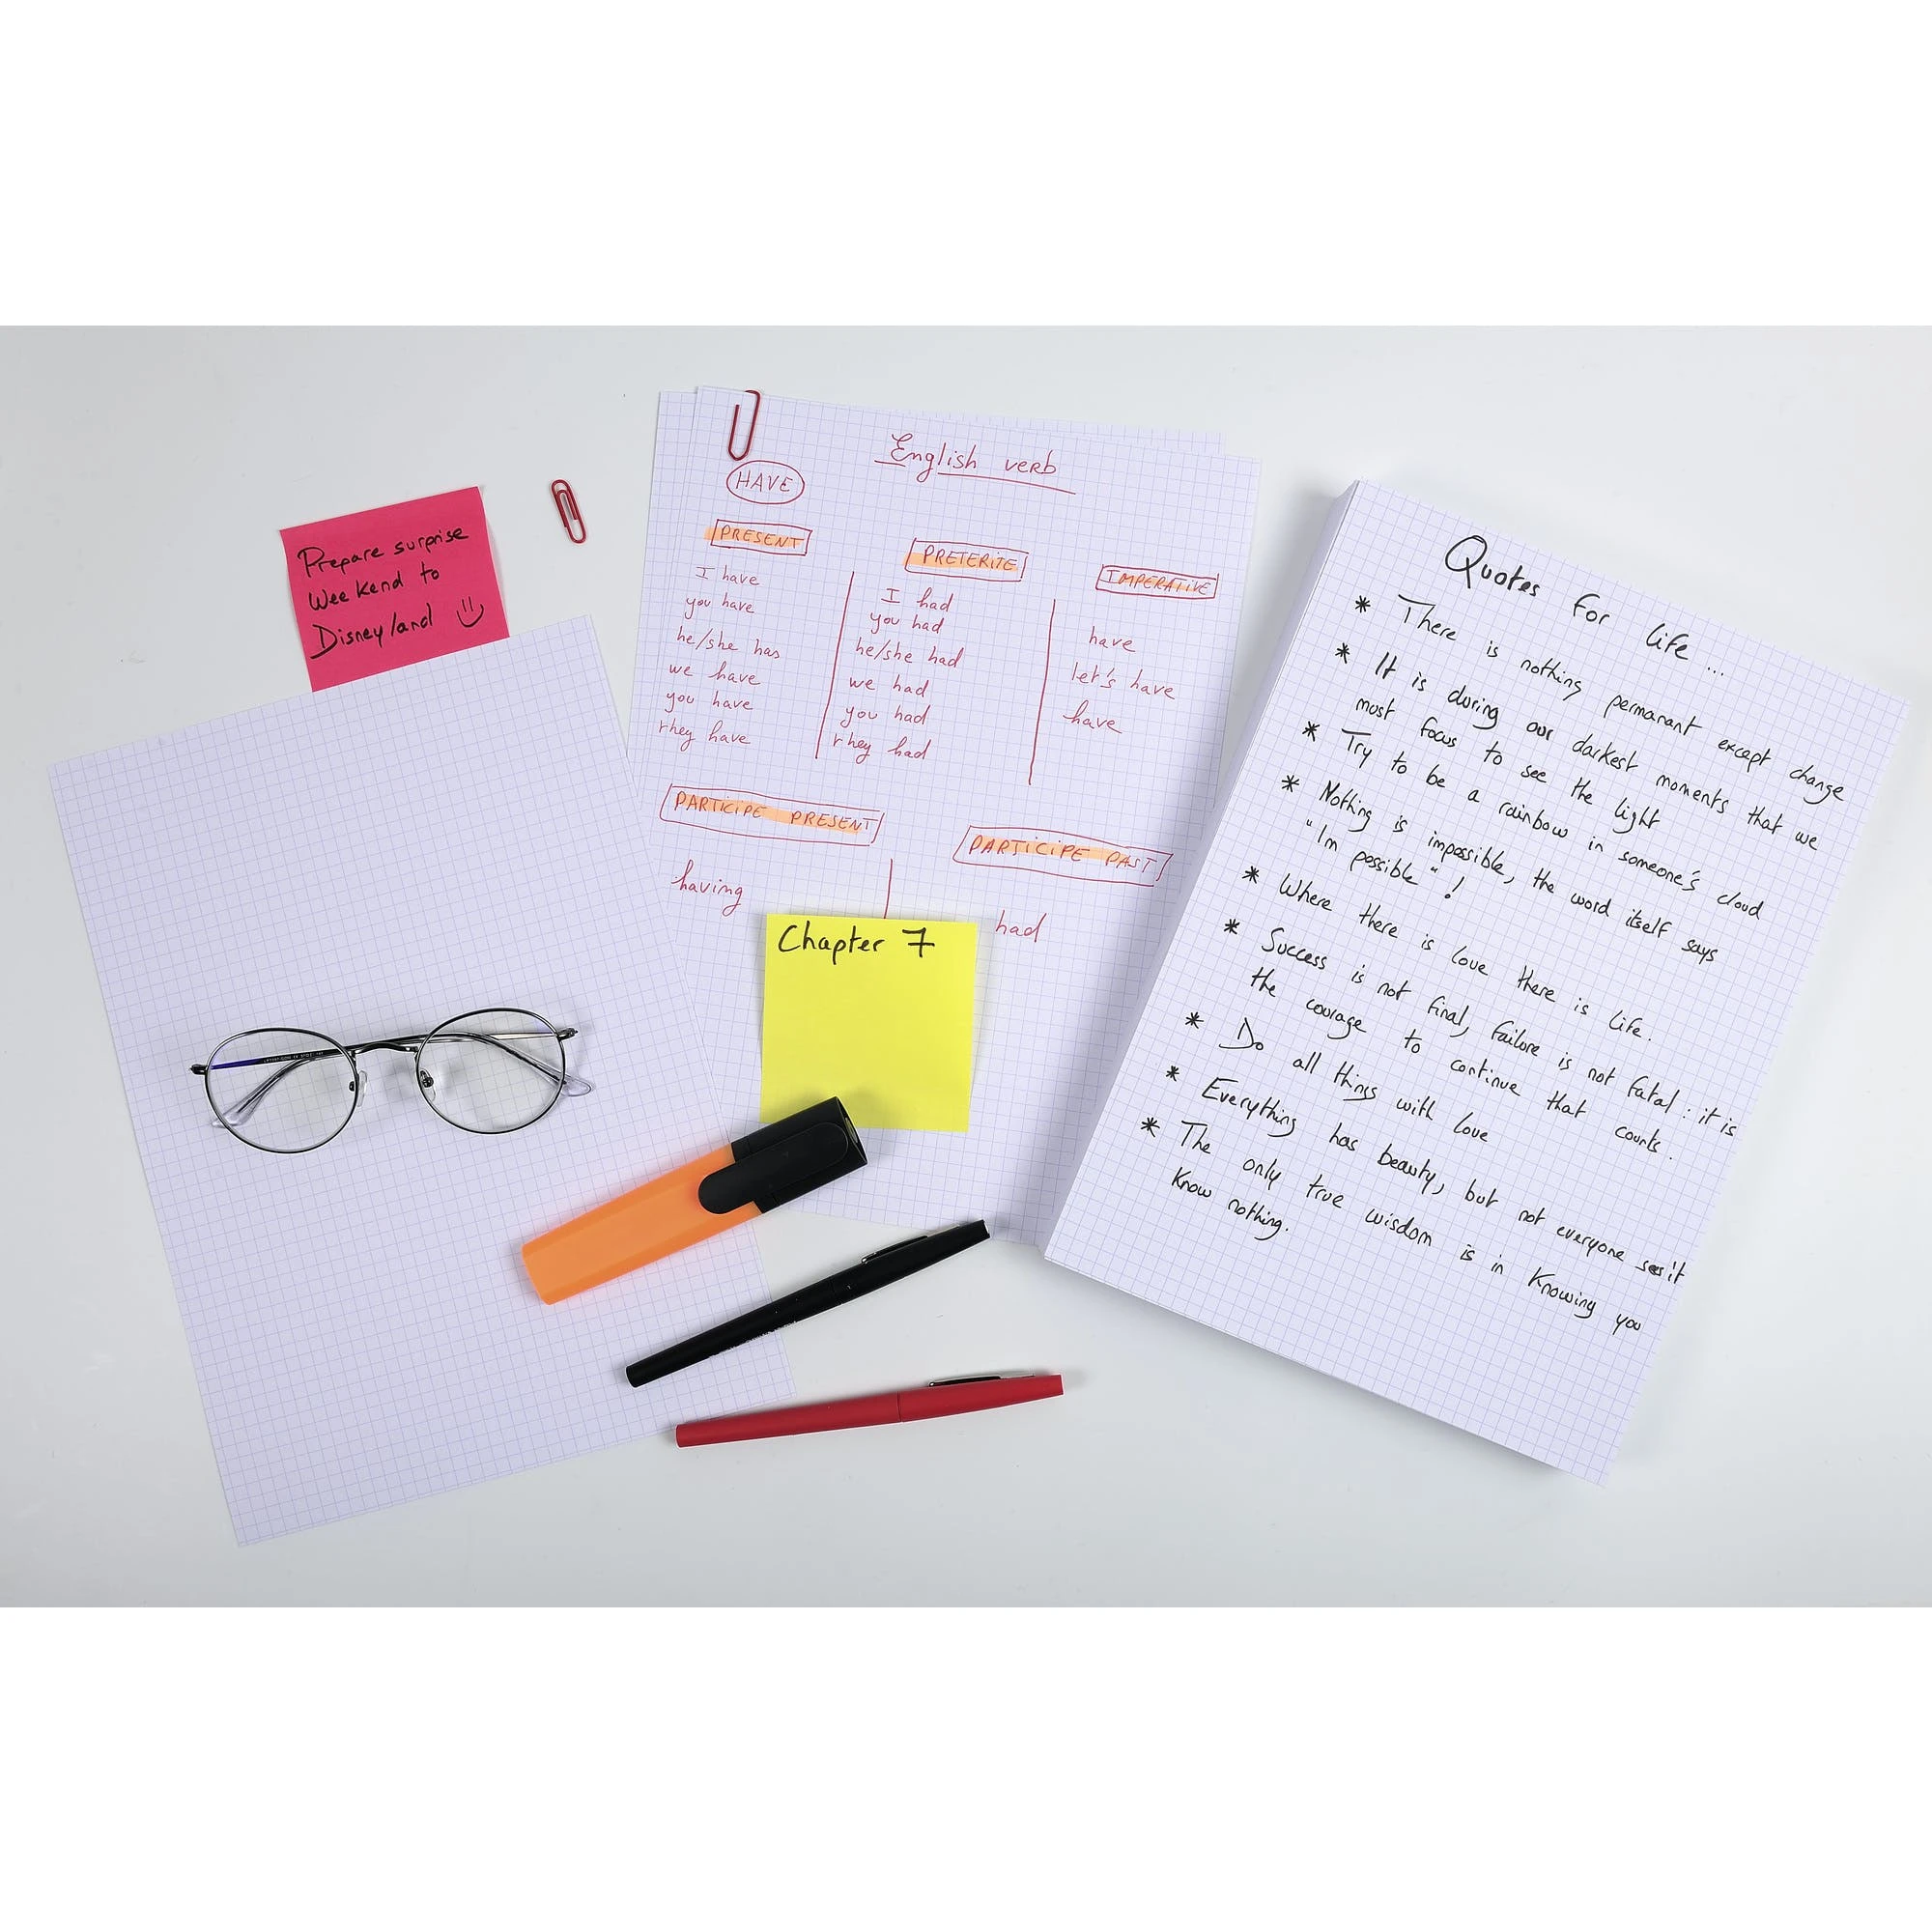 Prepare surprise
Weekend to
Disneyland
English verb
HAVE
PRESENT
I have
you have
he/she has
we have
you have
rhey have
PRETERITE
I had
you had
he/she had
we had
you had
rhey had
IMPERATIVE
have
let's have
have
PARTICIPE PRESENT
having
PARTICIPE PAST
had
Chapter 7
Quotes for life ....
* There is nothing permanant except change
* It is during our darkest moments that we
must focus to see the light
* Try to be a rainbow in someone's cloud
* Nothing is impossible, the word itself says
"Im possible"!
* Where there is love there is life.
* Success is not final, failure is not fatal : it is
the courage to continue that counts.
* Do all things with love
* Everything has beauty, but not everyone sees it
* The only true wisdom is in knowing you
know nothing.